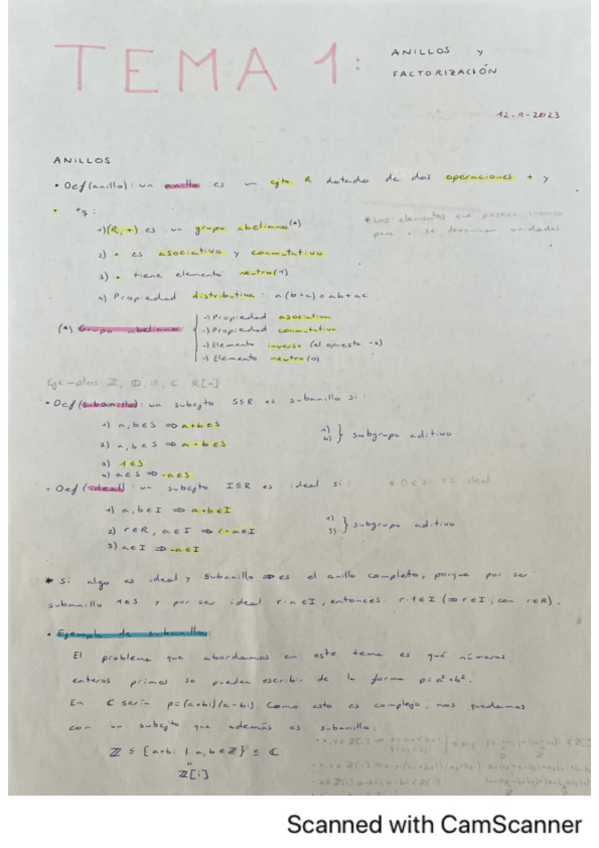 TEMA 1: ANILLOS y
FACTORIZACIÓN
12-9-2023
ANILLOS
• Def (anillo): un anillo es un cjto R dotado de dos operaciones + y
• tq:
1) (R, +) es un grupo abeliano (*)
* Los elementos que poseen inverso
para • se denominan unidades
2) • es asociativo y conmutativo
3) • tiene elemento neutro (1)
4) Propiedad distributiva: a(b+c) = ab+ac
(*) Grupo abeliano:
-) Propiedad asociativa
-) Propiedad conmutativa
-) Elemento inverso (el opuesto -x)
-) Elemento neutro (0)
Ejemplos: ℤ, ℚ, ℝ, ℂ, ℝ[x]
• Def (subanillo): un subcjto S⊆R es subanillo si:
1) a, b ∈ S ⇒ a+b ∈ S
2) a, b ∈ S ⇒ a·b ∈ S
3) 1 ∈ S
4) a ∈ S ⇒ -a ∈ S
1) 4) } subgrupo aditivo
• Def (ideal): un subcjto I⊆R es ideal si:
1) a, b ∈ I ⇒ a+b ∈ I
2) r ∈ R, a ∈ I ⇒ r·a ∈ I
3) a ∈ I ⇒ -a ∈ I
1) 3) } subgrupo aditivo
* Si algo es ideal y subanillo ⇒ es el anillo completo, porque por ser
subanillo 1 ∈ S y por ser ideal r·a ∈ I, entonces r·1 ∈ I (⇒ r ∈ I, con r ∈ R).
• Ejemplo de subanillos:
El problema que abordamos en este tema es qué números
enteros primos se pueden escribir de la forma p=a²+b².
En ℂ sería p=(a+bi)(a-bi). Como esto es complejo, nos quedamos
con un subcjto que además es subanillo:
ℤ ⊆ {a+bi | a, b ∈ ℤ} ⊆ ℂ
"
ℤ[i]
Scanned with CamScanner